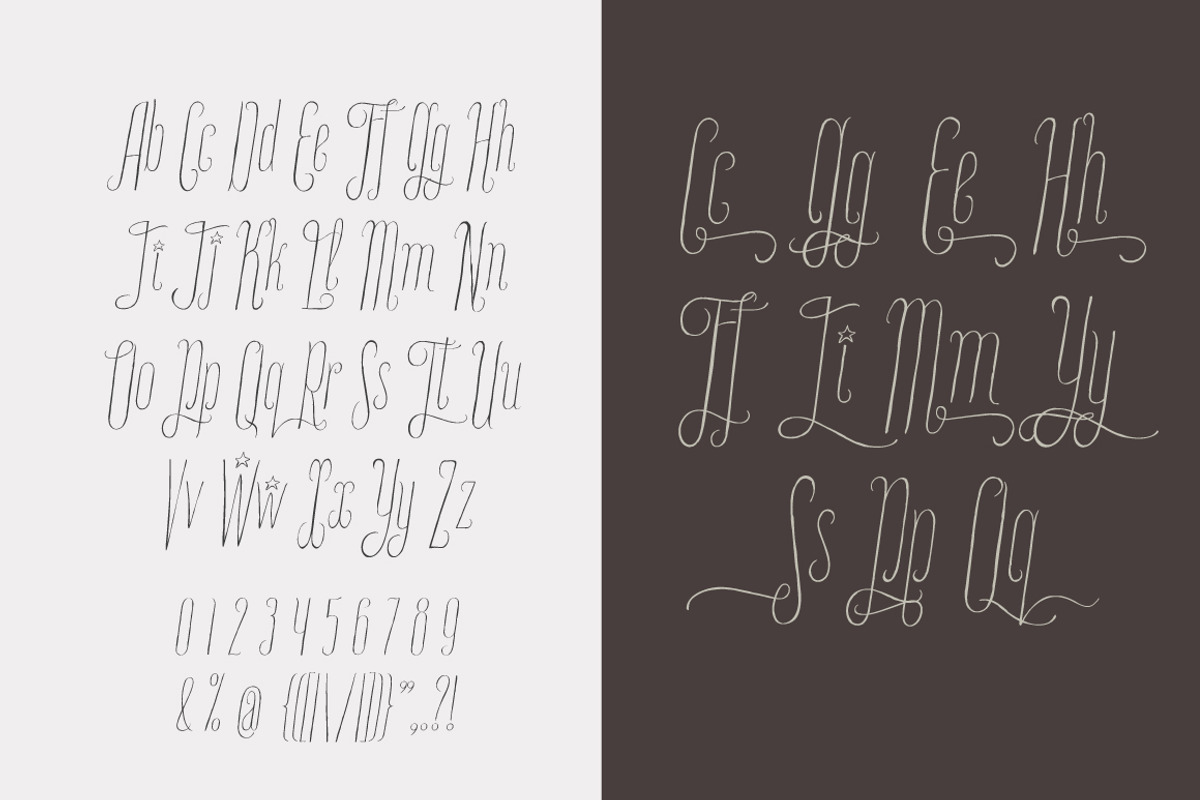 Ab Cc Dd Ee Ff Gg Hh
Ii Jj Kk Ll Mm Nn
Oo Pp Qq Rr Ss Tt Uu
Vv Ww Xx Yy Zz
0 1 2 3 4 5 6 7 8 9
& % @ {([|\/|])} ” ,..?!
Cc Gg Ee Hh
Ff Ii Mm Yy
Ss Pp Qq